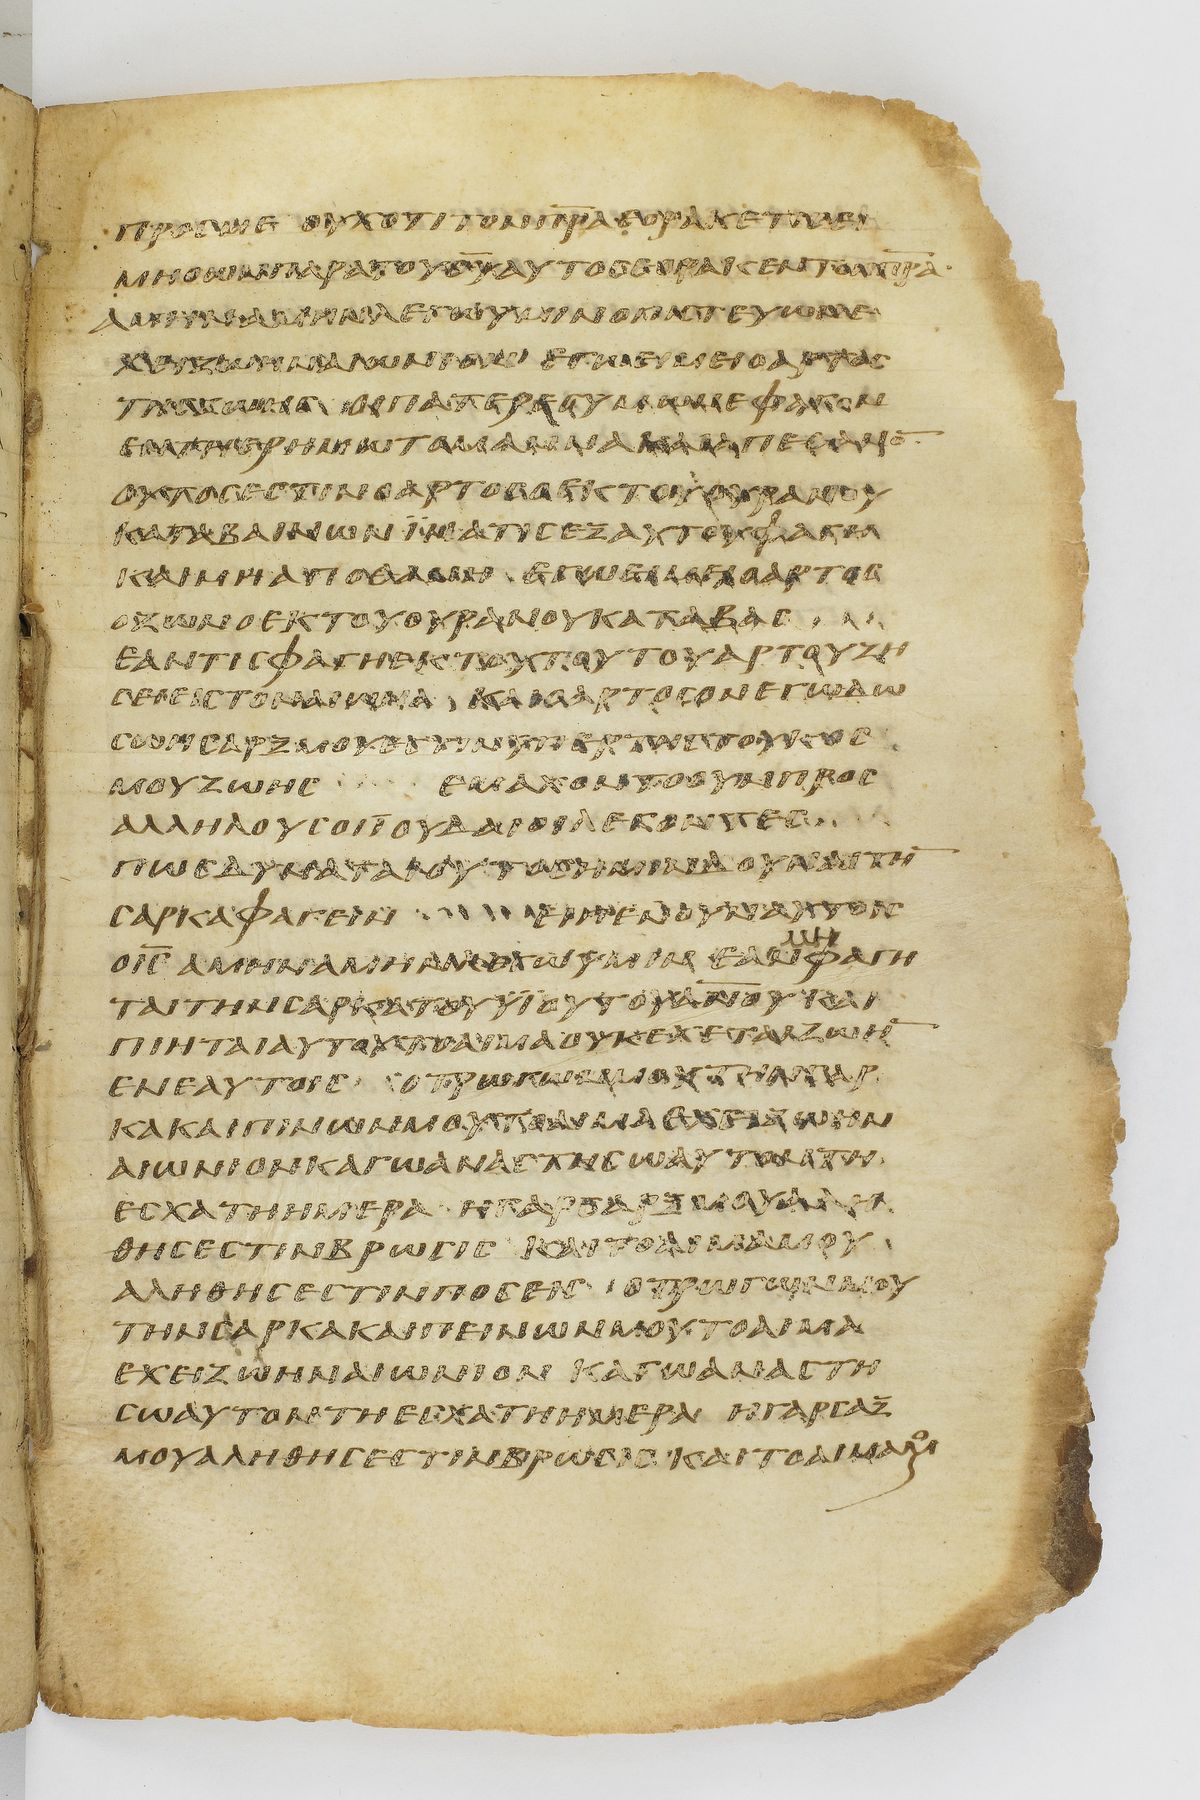 ΠΡΟCΜΕ ΟΥΧΟΤΙΤΟΝΠ̅Ρ̅Α̅ΕΟΡΑΚΕΤΙCΕΙ
ΜΗΟΩΝΠΑΡΑΤΟΥΘ̅Υ̅ΑΥΤΟCΕΟΡΑΚΕΝΤΟΝΠ̅Ρ̅Α̅
ΑΜΗΝΑΜΗΝΛΕΓΩΥΜΙΝΟΠΙCΤΕΥΩΝ
ΕΧΕΙΖΩΗΝΑΙΩΝΙΟΝ ΕΓΩΕΙΜΕΙΟΑΡΤΟC
ΤΗCΖΩΗC ΟΙΠΑΤΕΡΕCΥΜΩΝΕΦΑΓΟΝ
ΕΝΤΗΕΡΗΜΩΤΟΜΑΝΝΑΚΑΙΑΠΕΘΑΝΟ̅
ΟΥΤΟCΕCΤΙΝΟΑΡΤΟCΟΕΚΤΟΥΟΥΡΑΝΟΥ
ΚΑΤΑΒΑΙΝΩΝΪΝΑΤΙCΕΞΑΥΤΟΥΦΑΓΗ
ΚΑΙΜΗΑΠΟΘΑΝΗ ΕΓΩΕΙΜΕΙΟΑΡΤΟC
ΟΖΩΝΟΕΚΤΟΥΟΥΡΑΝΟΥΚΑΤΑΒΑC
ΕΑΝΤΙCΦΑΓΗΕΚΤΟΥΤΟΥΤΟΥΑΡΤΟΥΖΗ
CΕΙΕΙCΤΟΝΑΙΩΝΑ ΚΑΙΟΑΡΤΟCΟΝΕΓΩΔΩ
CΩΗCΑΡΞΜΟΥΕCΤΙΝΥΠΕΡΤΗCΤΟΥΚΟC
ΜΟΥΖΩΗC ΕΜΑΧΟΝΤΟΟΥΝΠΡΟC
ΑΛΛΗΛΟΥCΟΪΙΟΥΔΑΙΟΙΛΕΓΟΝΤΕC
ΠΩCΔΥΝΑΤΑΙΟΥΤΟCΗΜΙΝΔΟΥΝΑΙΤΗ̅
CΑΡΚΑΦΑΓΕΙΝ ΕΙΠΕΝΟΥΝΑΥΤΟΙC
ΟΙ̅C̅ ΑΜΗΝΑΜΗΝΛΕΓΩΥΜΙΝΕΑΝΜΗΦΑΓΗ
ΤΑΙΤΗΝCΑΡΚΑΤΟΥΫΙΟΥΤΟΥΑ̅Ν̅Ο̅Υ̅ΚΑΙ
ΠΙΗΤΑΙΑΥΤΟΥΤΟΑΙΜΑΟΥΚΕΧΕΤΑΙΖΩΗ̅
ΕΝΕΑΥΤΟΙC ΟΤΡΩΓΩΝΑΥΤΟΥΤΗΝCΑΡ
ΚΑΚΑΙΠΙΝΩΝΑΥΤΟΥΤΟΑΙΜΑΕΧΕΙΖΩΗΝ
ΑΙΩΝΙΟΝΚΑΓΩΑΝΑCΤΗCΩΑΥΤΟΝΤΗ
ΕCΧΑΤΗΗΜΕΡΑ ΗΓΑΡCΑΡΞΜΟΥΑΛΗ
ΘΗCΕCΤΙΝΒΡΩCΙC ΚΑΙΤΟΑΙΜΑΜΟΥ
ΑΛΗΘΗCΕCΤΙΝΠΟCΕΙC ΟΤΡΩΓΩΝΜΟΥ
ΤΗΝCΑΡΚΑΚΑΙΠΕΙΝΩΝΜΟΥΤΟΑΙΜΑ
ΕΧΕΙΖΩΗΝΑΙΩΝΙΟΝ ΚΑΓΩΑΝΑCΤΗ
CΩΑΥΤΟΝΤΗΕCΧΑΤΗΗΜΕΡΑ ΗΓΑΡCΑΡΞ
ΜΟΥΑΛΗΘΗCΕCΤΙΝΒΡΩCΙC ΚΑΙΤΟΑΙΜΑΜΟΥ